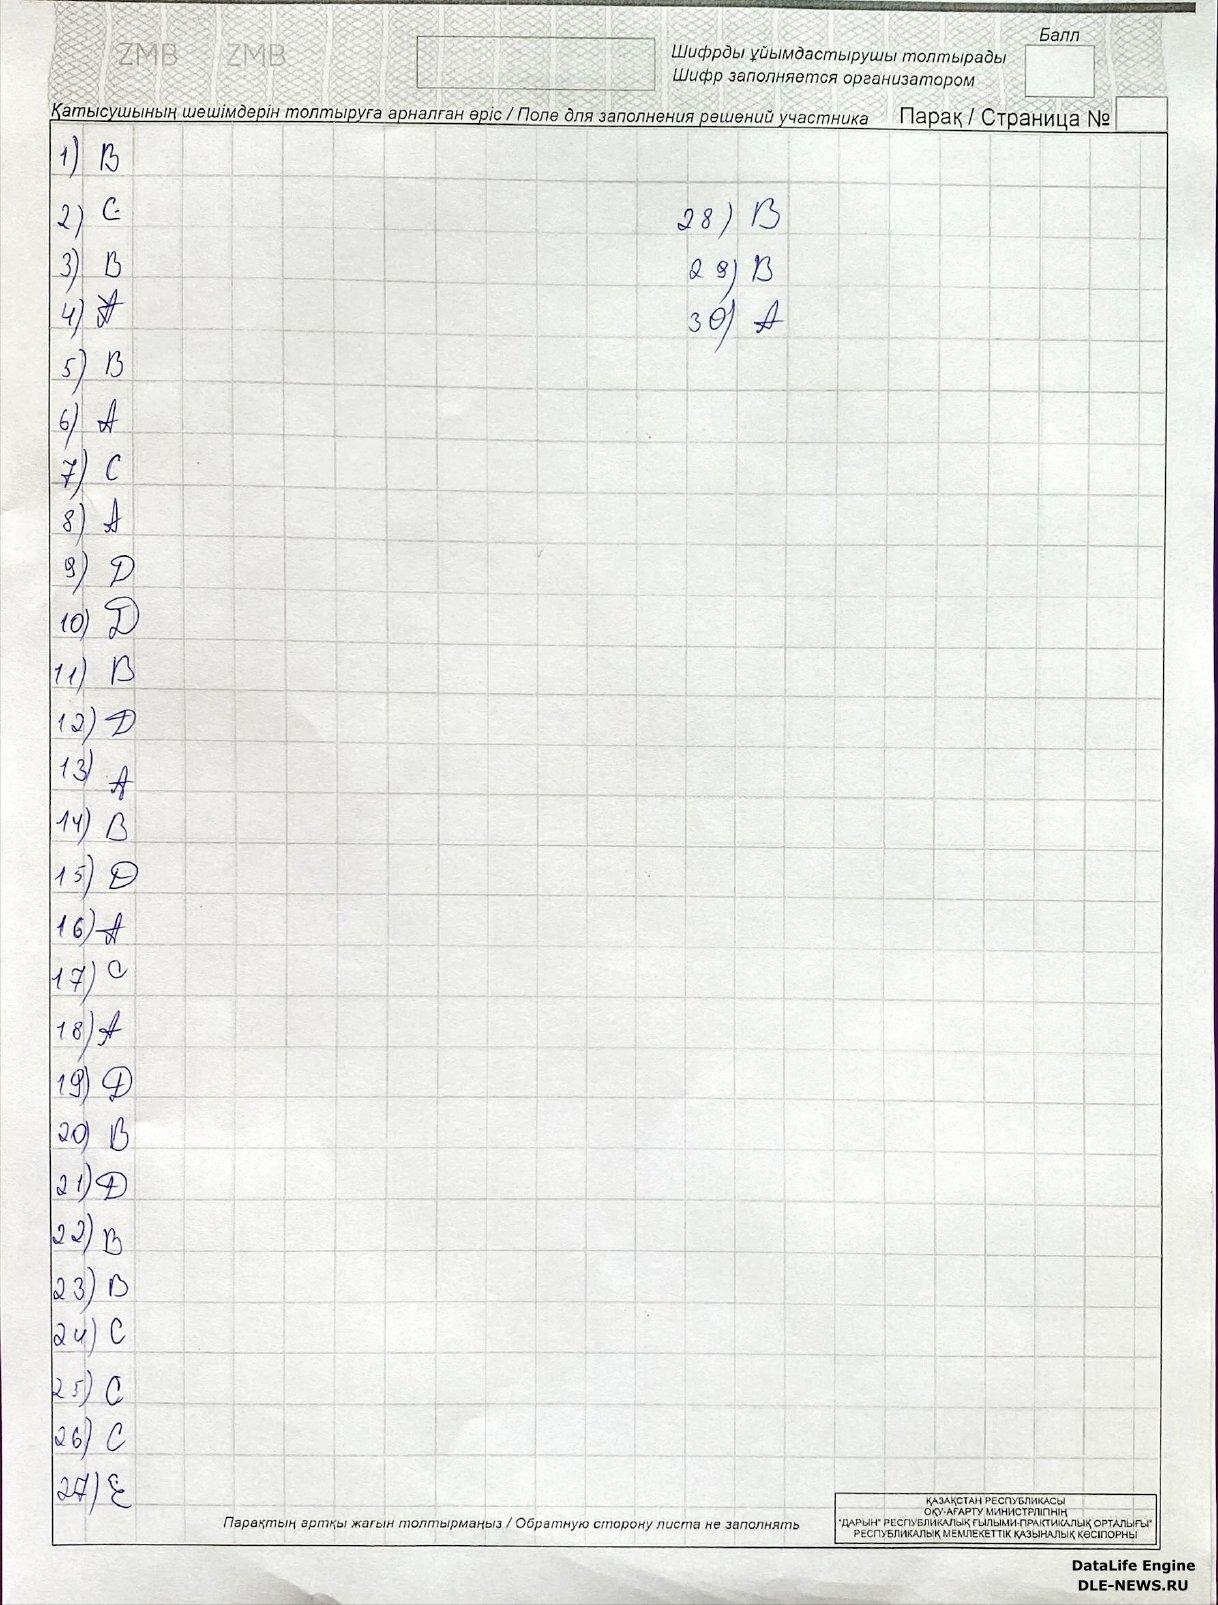 ZMB ZMB
Балл
Шифрды ұйымдастырушы толтырады
Шифр заполняется организатором
Қатысушының шешімдерін толтыруға арналған өріс / Поле для заполнения решений участника
Парақ / Страница №
1) B
2) C
3) B
4) A
5) B
6) A
7) C
8) A
9) D
10) D
11) B
12) D
13) A
14) B
15) D
16) A
17) C
18) A
19) D
20) B
21) D
22) B
23) B
24) C
25) C
26) C
27) E
28) B
29) B
30) A
Парақтың артқы жағын толтырмаңыз / Обратную сторону листа не заполнять
ҚАЗАҚСТАН РЕСПУБЛИКАСЫ
ОҚУ-АҒАРТУ МИНИСТРЛІГІНІҢ
"ДАРЫН" РЕСПУБЛИКАЛЫҚ ҒЫЛЫМИ-ПРАКТИКАЛЫҚ ОРТАЛЫҒЫ"
РЕСПУБЛИКАЛЫҚ МЕМЛЕКЕТТІК ҚАЗЫНАЛЫҚ КӘСІПОРНЫ
DataLife Engine
DLE-NEWS.RU